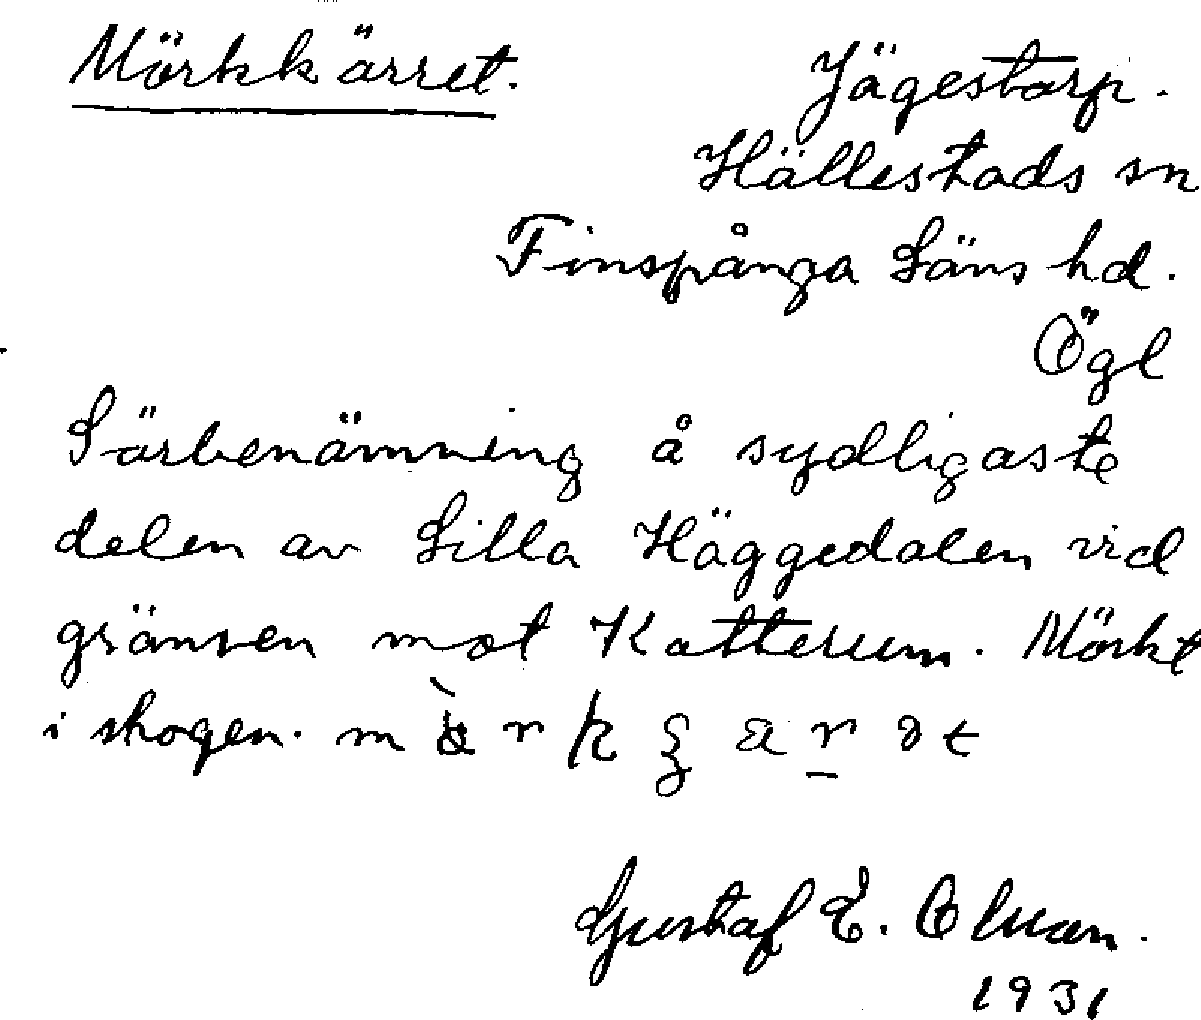 Mörkkärret.
Jägestorp.
Hällestads sn
Finspånga Läns hd.
Ögl
Särbenämning å sydligaste
delen av Lilla Häggedalen vid
gränsen mot Katterum. Mörkt
i skogen.
Gustaf E.
1931